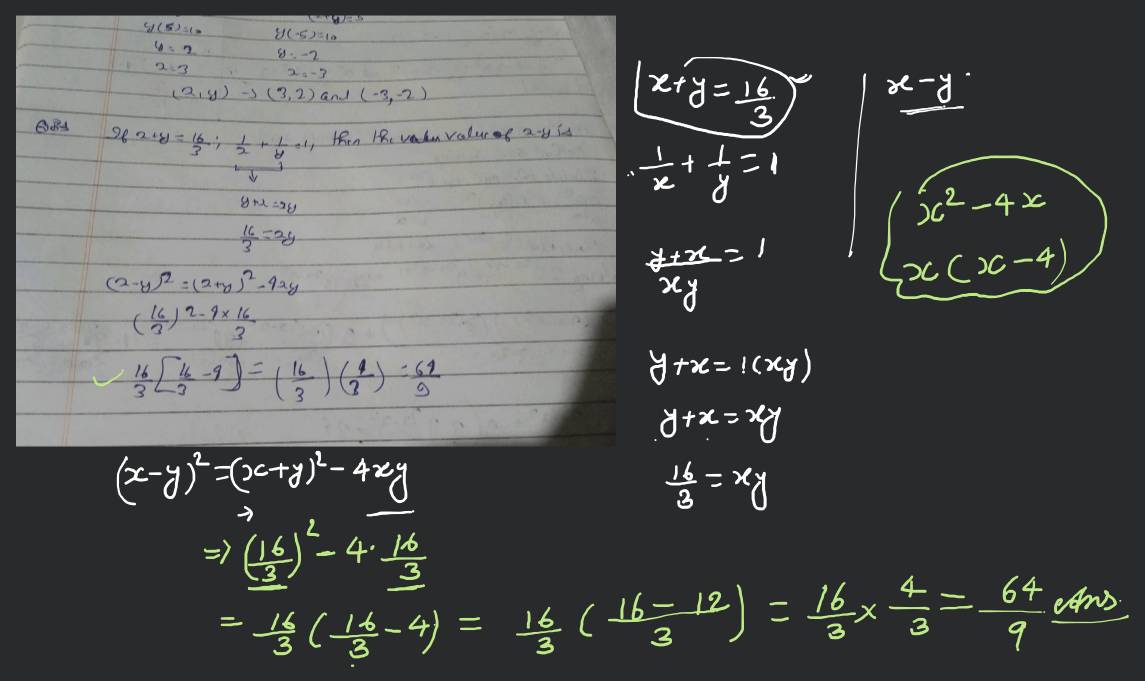 y(5)=10 y(-5)=10
y=2 y=-2
x=3 x=-3
(x,y) → (3,2) and (-3,-2)
If x+y = 16/3 ; 1/x + 1/y = 1, then the value of x-y is
↓
y+x = xy
16/3 = xy
(x-y)² = (x+y)² - 4xy
(16/3)² - 4 × 16/3
✓ 16/3 [16/3 - 4] = (16/3) (4/3) = 64/9
x+y = 16/3
1/x + 1/y = 1
(y+x)/xy = 1
y+x = 1(xy)
y+x = xy
16/3 = xy
x-y
x² - 4x
x(x-4)
(x-y)² = (x+y)² - 4xy
→
⇒ (16/3)² - 4· 16/3
= 16/3 (16/3 - 4) = 16/3 ((16-12)/3) = 16/3 × 4/3 = 64/9 Ans.